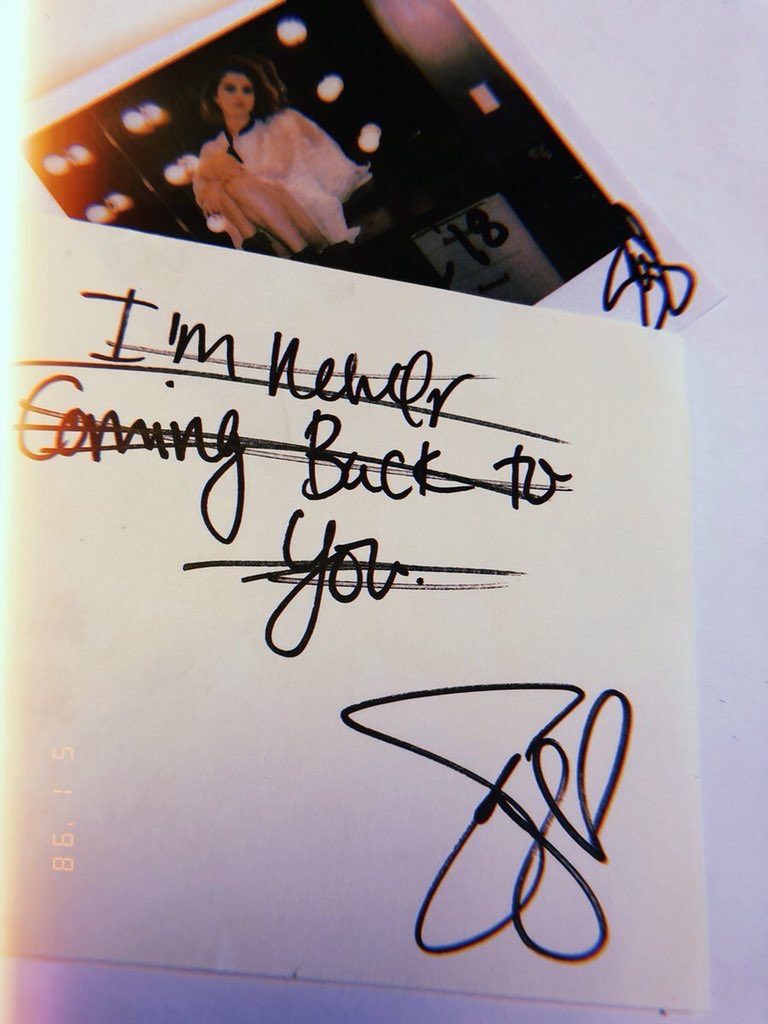 '18
I'm Never
Coming Back to
you.
5 1 '98